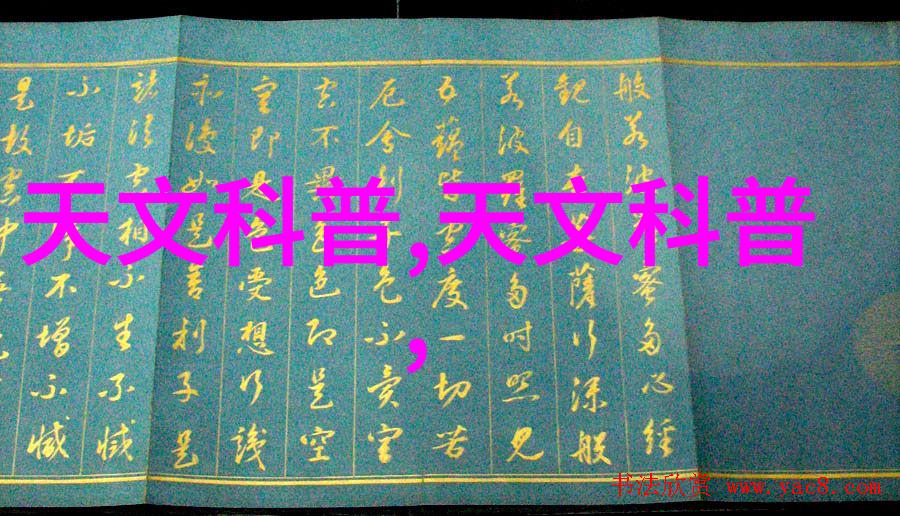 般若波蜜多心経
觀自在薩行深般
若波羅蜜多时照見
五蘊皆空度一切苦
厄舍利色不異空
空不異色即是空
空即是色受想行識
亦復如是舍利子是
諸法空相不生不滅
不垢不增不減
是故空中
天文科普,天文科普
,
书法欣赏 www.yac8.com